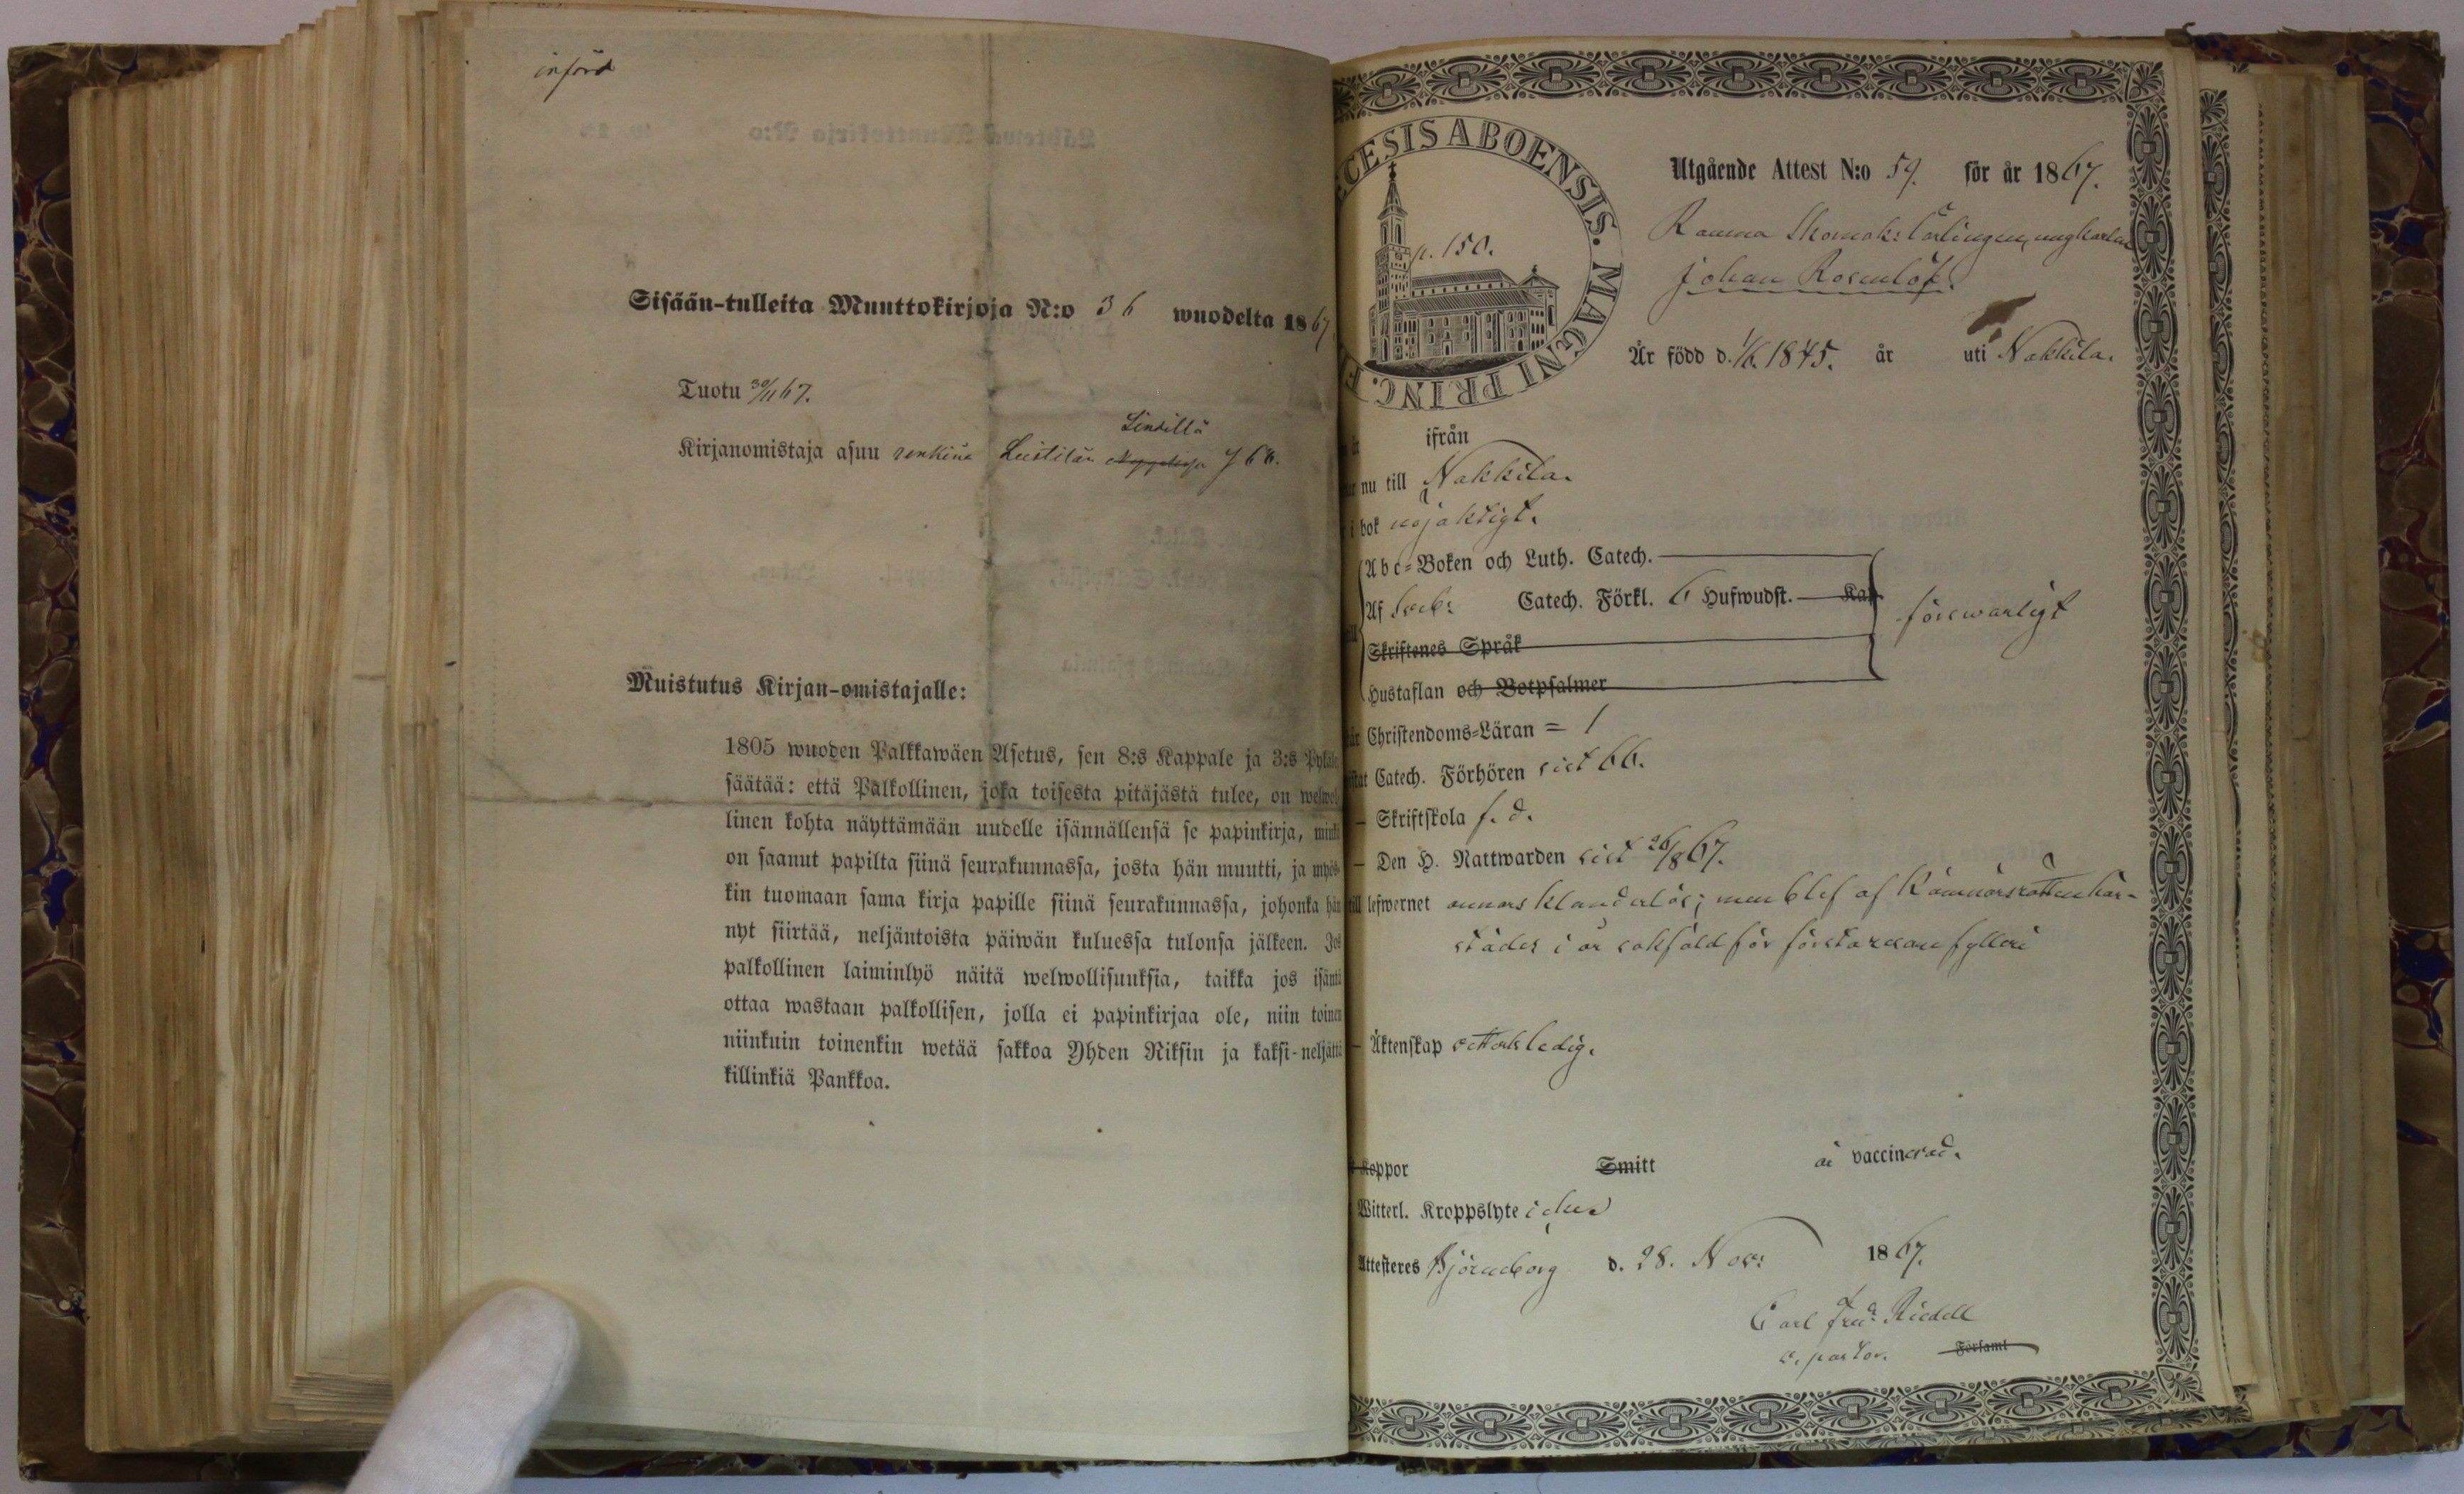 införd
Sisään-tulleita Muuttokirjoja N:o 36 wuodelta 1867.
Tuotu 30/11 67.
Lindillä
Kirjanomistaja asuu renkinä Leistilän 766.
Muistutus Kirjan-omistajalle:
1805 wuoden Palkkawäen Asetus, sen 8:s Kappale ja 3:s
säätää: että Palkollinen, joka toisesta pitäjästä tulee, on
linen kohta näyttämään uudelle isännällensä se papinkirja,
on saanut papilta siinä seurakunnassa, josta hän muutti, ja myös-
kin tuomaan sama kirja papille siinä seurakunnassa, johonka hän
nyt siirtää, neljäntoista päiwän kuluessa tulonsa jälkeen. Jos
palkollinen laiminlyö näitä welwollisuuksia, taikka jos isäntä
ottaa wastaan palkollisen, jolla ei papinkirjaa ole, niin toinen
niinkuin toinenkin wetää sakkoa Yhden Riksin ja kaksi-neljättä
killinkiä Pankkoa.
CESIS ABOENSIS. MAGNI PRINC. F
p. 150.
Utgående Attest N:o 59. för år 1867.
Skomak: Lärlingen, ungkarlen
Johan Rosenlöf.
Är född d. 1/6. 1845. år uti Nakkila.
ifrån
nu till Nakkila.
i bok nöjaktigt.
Abc-Boken och Luth. Catech.
Af Catech. Förkl. 6 Hufwudst. Kap
förswarligt
Skriftenes Språk
Hustaflan och Botpsalmer
Christendoms-Läran = 1
Catech. Förhören sist 66.
— Skriftskola f. d.
— Den H. Nattwarden sist 26/8 67.
till lefwernet annars klanderlös; men blef af Kämnärsrätten här-
städes i år sakfäld för första resans fylleri
— Äktenskap ledig.
Koppor Smitt är vaccinerad.
Witterl. Kroppslyte
Attesteres Björneborg d. 28. Nov: 1867.
Carl Fredr Riedell
v. pastor. Församl